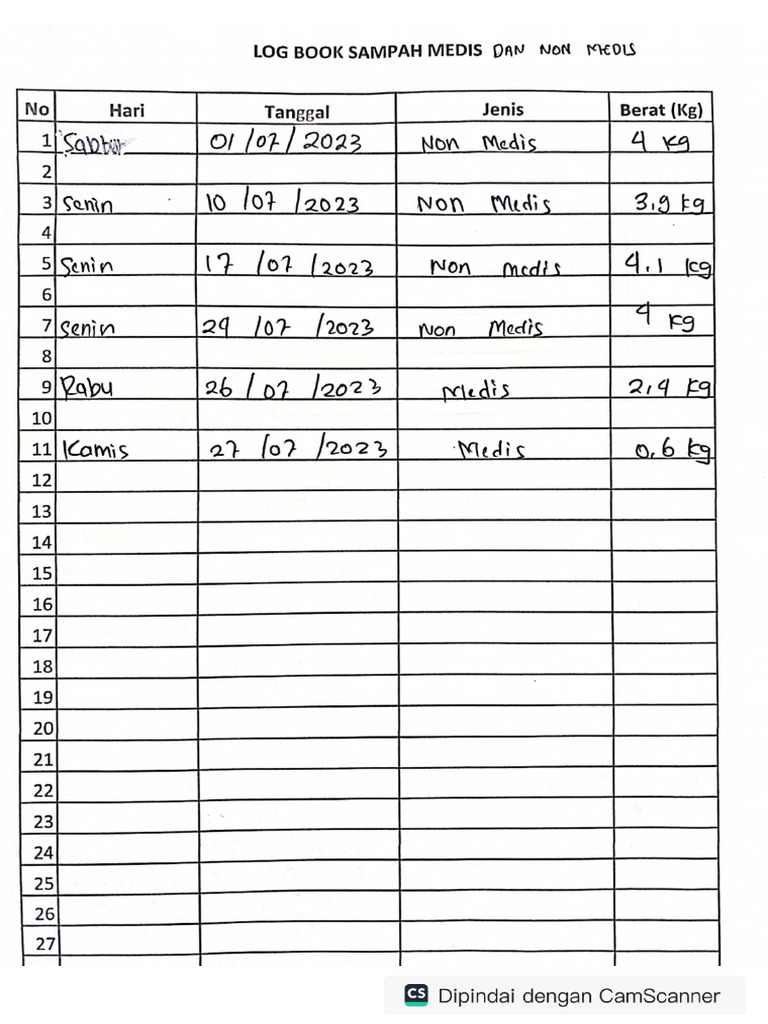 LOG BOOK SAMPAH MEDIS DAN NON MEDIS
No Hari Tanggal Jenis Berat (Kg)
1 Sabtu 01/07/2023 Non Medis 4 kg
2
3 Senin 10/07/2023 Non Medis 3,9 kg
4
5 Senin 17/07/2023 Non medis 4.1 kg
6
7 Senin 24/07/2023 Non Medis 4 kg
8
9 Rabu 26/07/2023 Medis 2,4 kg
10
11 Kamis 27/07/2023 Medis 0,6 kg
12
13
14
15
16
17
18
19
20
21
22
23
24
25
26
27
CS Dipindai dengan CamScanner